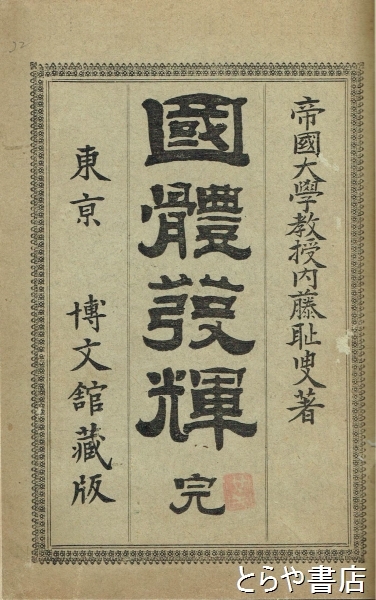 帝國大學教授內藤耻叟著
國體發輝
完
東京 博文館藏版
とらや書店